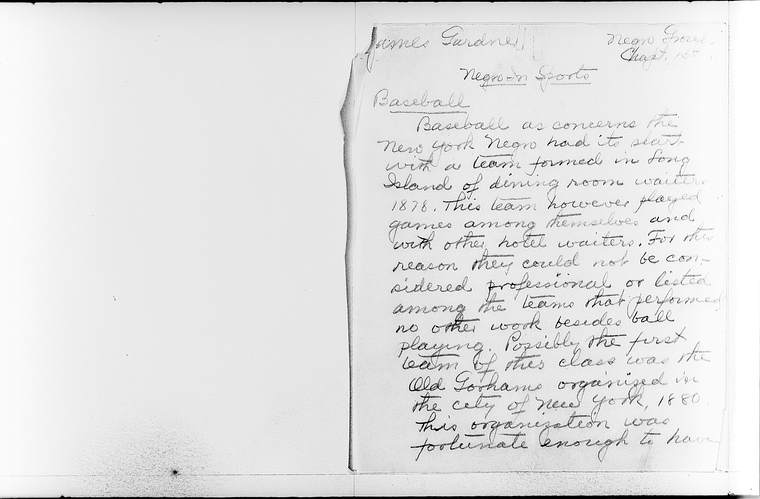 James Gardner
Negro Group
Chapt. 1st
Negro In Sports
Baseball
Baseball as concerns the
New York Negro had its start
with a team formed in Long
Island of dining room waiters
1878. This team however played
games among themselves and
with other hotel waiters. For this
reason they could not be con-
sidered professional or listed
among the teams that performed
no other work besides ball
playing. Possibly the first
team of this class was the
Old Gorhams organized in
the city of New York, 1880.
This organization was
fortunate enough to have